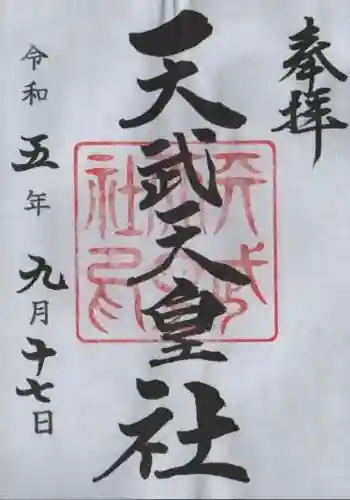 奉拝
天武天皇社
令和五年九月十七日